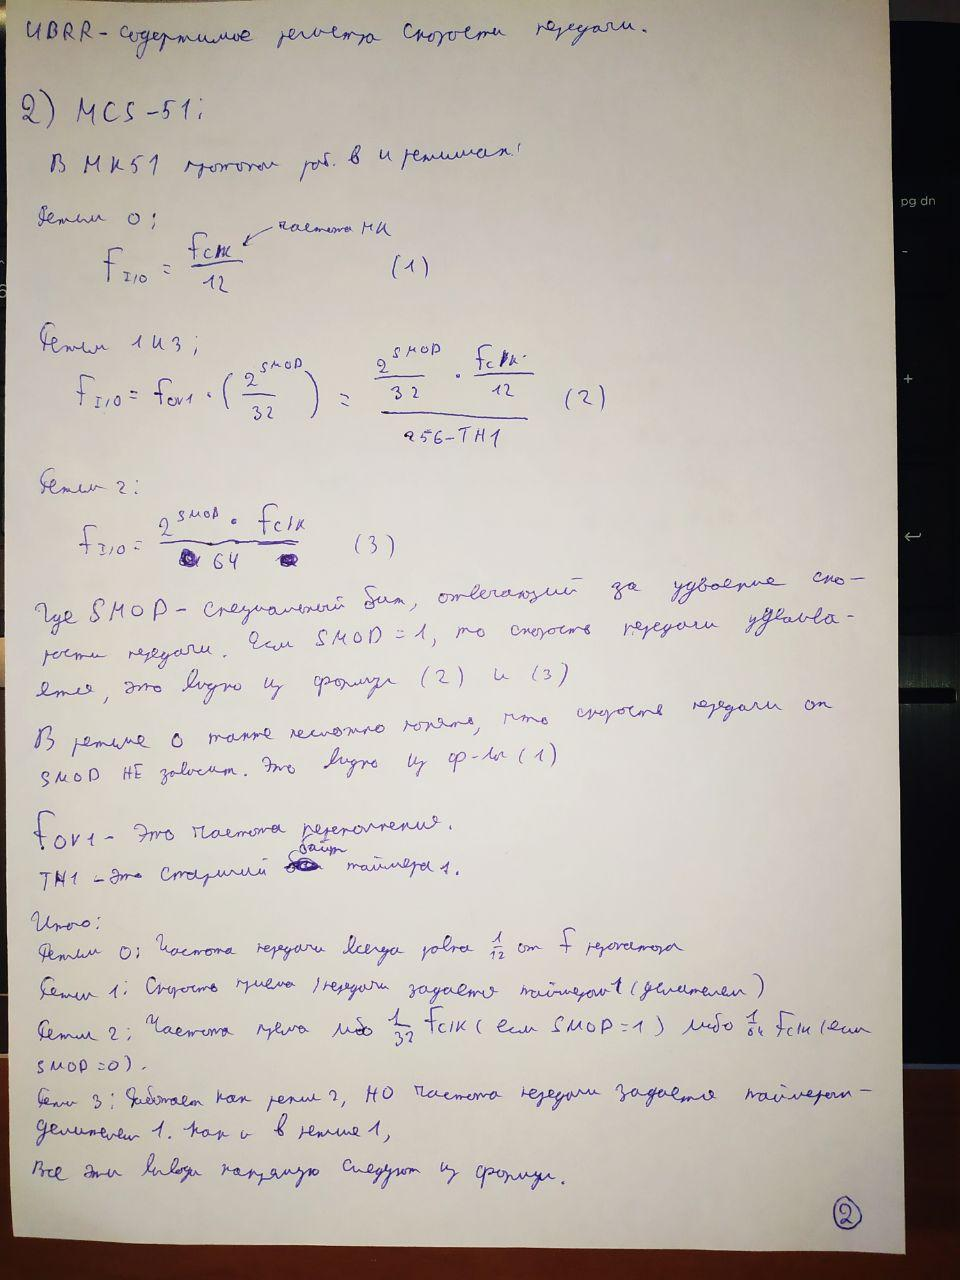 UBRR - содержимое регистра скорости передачи.
2) MCS-51:
В МК51 протокол раб. в 4 режимах:
Режим 0:
f I/O = fclk / 12 ← частота МК (1)
Режим 1 и 3:
f I/O = fOV1 · (2^SMOD / 32) = (2^SMOD / 32 · fclk / 12) / (256-TH1) (2)
Режим 2:
f I/O = 2^SMOD · fclk / 64 (3)
Где SMOD - специальный бит, отвечающий за удвоение ско-
рости передачи. Если SMOD = 1, то скорость передачи удваива-
ется, это видно из формул (2) и (3)
В режиме 0 также несложно понять, что скорость передачи от
SMOD НЕ зависит. Это видно из ф-лы (1)
fOV1 - Это частота переполнения.
TH1 - это старший байт таймера 1.
Итого:
Режим 0: Частота передачи всегда равна 1/12 от f резонатора
Режим 1: Скорость приема/передачи задается таймером 1 (делителем)
Режим 2: Частота приема либо 1/32 fclk (если SMOD = 1) либо 1/64 fclk (если
SMOD = 0).
Режим 3: Работает как режим 2, НО частота передачи задается таймером-
делителем 1. Как и в режиме 1,
Все эти выводы напрямую следуют из формул.
2
pg dn
-
+
6